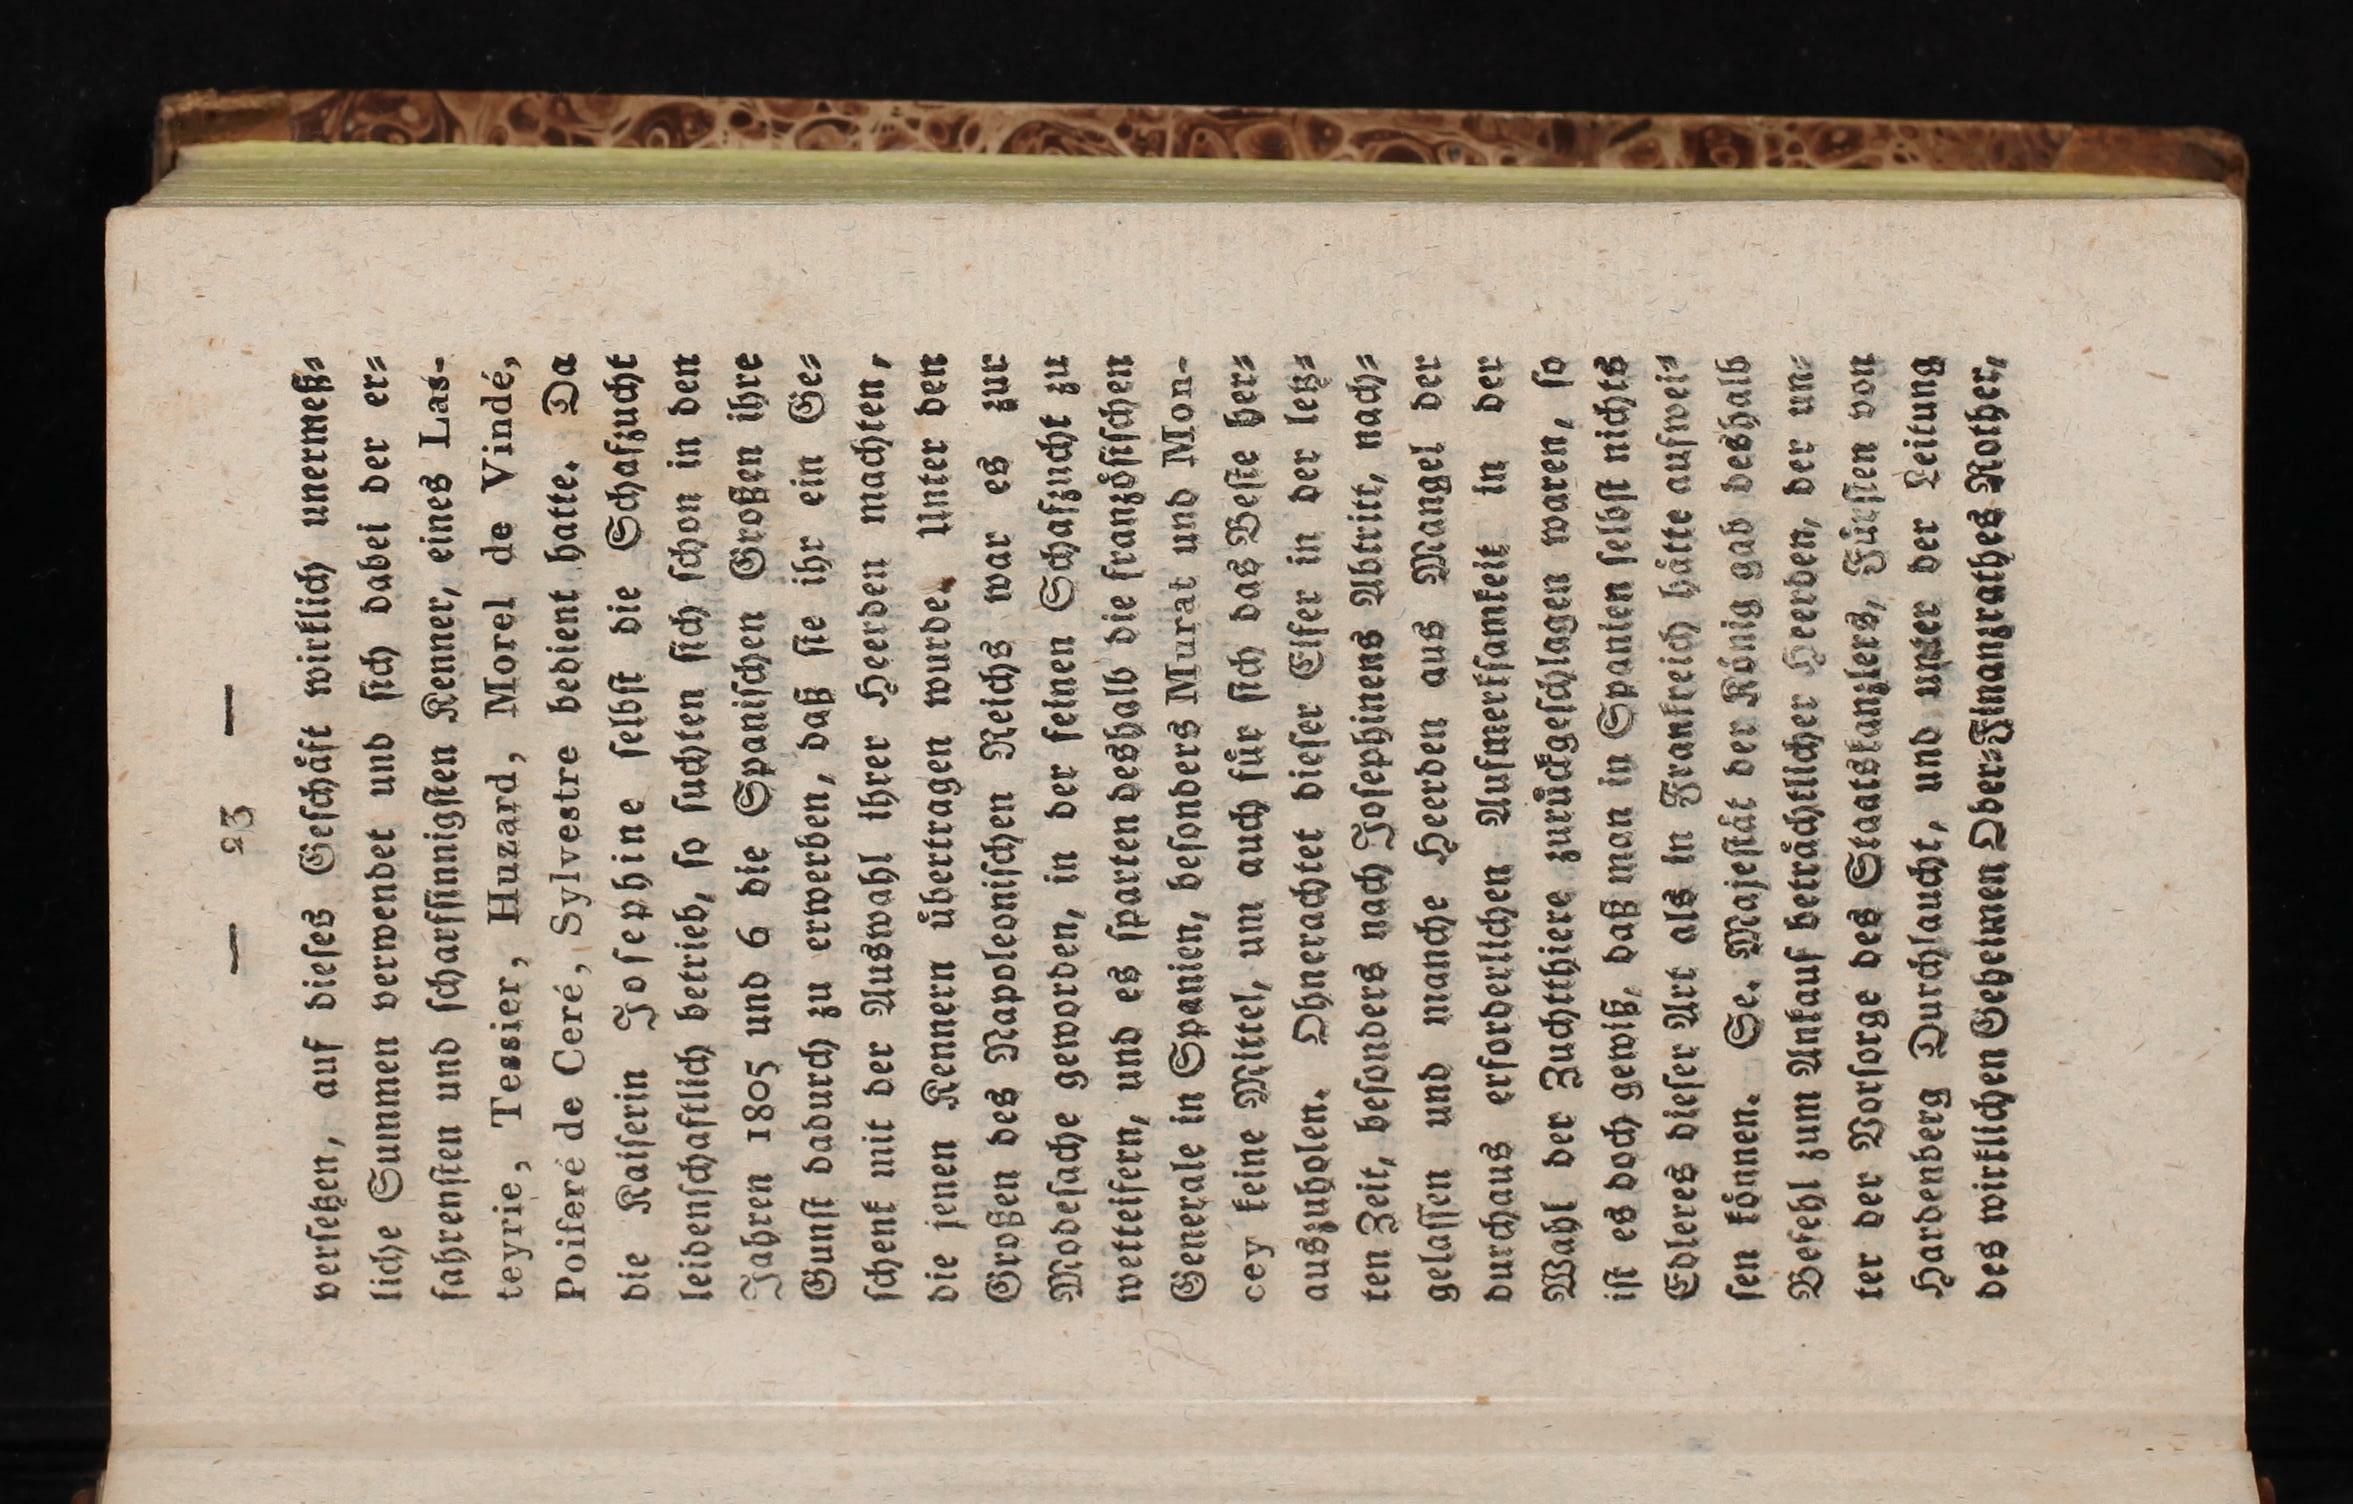 — 23 —
versetzen, auf dieses Geschäft wirklich unermeß-
liche Summen verwendet und sich dabei der er-
fahrensten und scharfsinnigsten Kenner, eines Las-
teyrie, Tessier, Huzard, Morel de Vindé,
Poiferé de Ceré, Sylvestre bedient hatte. Da
die Kaiserin Josephine selbst die Schafzucht
leidenschaftlich betrieb, so suchten sich schon in den
Jahren 1805 und 6 die Spanischen Großen ihre
Gunst dadurch zu erwerben, daß sie ihr ein Ge-
schenk mit der Auswahl ihrer Heerden machten,
die jenen Kennern übertragen wurde. Unter den
Großen des Napoleonischen Reichs war es zur
Modesache geworden, in der feinen Schafzucht zu
wetteifern, und es sparten deshalb die französischen
Generale in Spanien, besonders Murat und Mon-
cey keine Mittel, um auch für sich das Beste her-
auszuholen. Ohnerachtet dieser Eifer in der letz-
ten Zeit, besonders nach Josephinens Abtritt, nach-
gelassen und manche Heerden aus Mangel der
durchaus erforderlichen Aufmerksamkeit in der
Wahl der Zuchtthiere zurückgeschlagen waren, so
ist es doch gewiß, daß man in Spanien selbst nichts
Edleres dieser Art als in Frankreich hätte aufwei-
sen können. Se. Majestät der König gab deshalb
Befehl zum Ankauf beträchtlicher Heerden, der un-
ter der Vorsorge des Staatskanzlers, Fürsten von
Hardenberg Durchlaucht, und unter der Leitung
des wirklichen Geheimen Ober-Finanzrathes Rother,